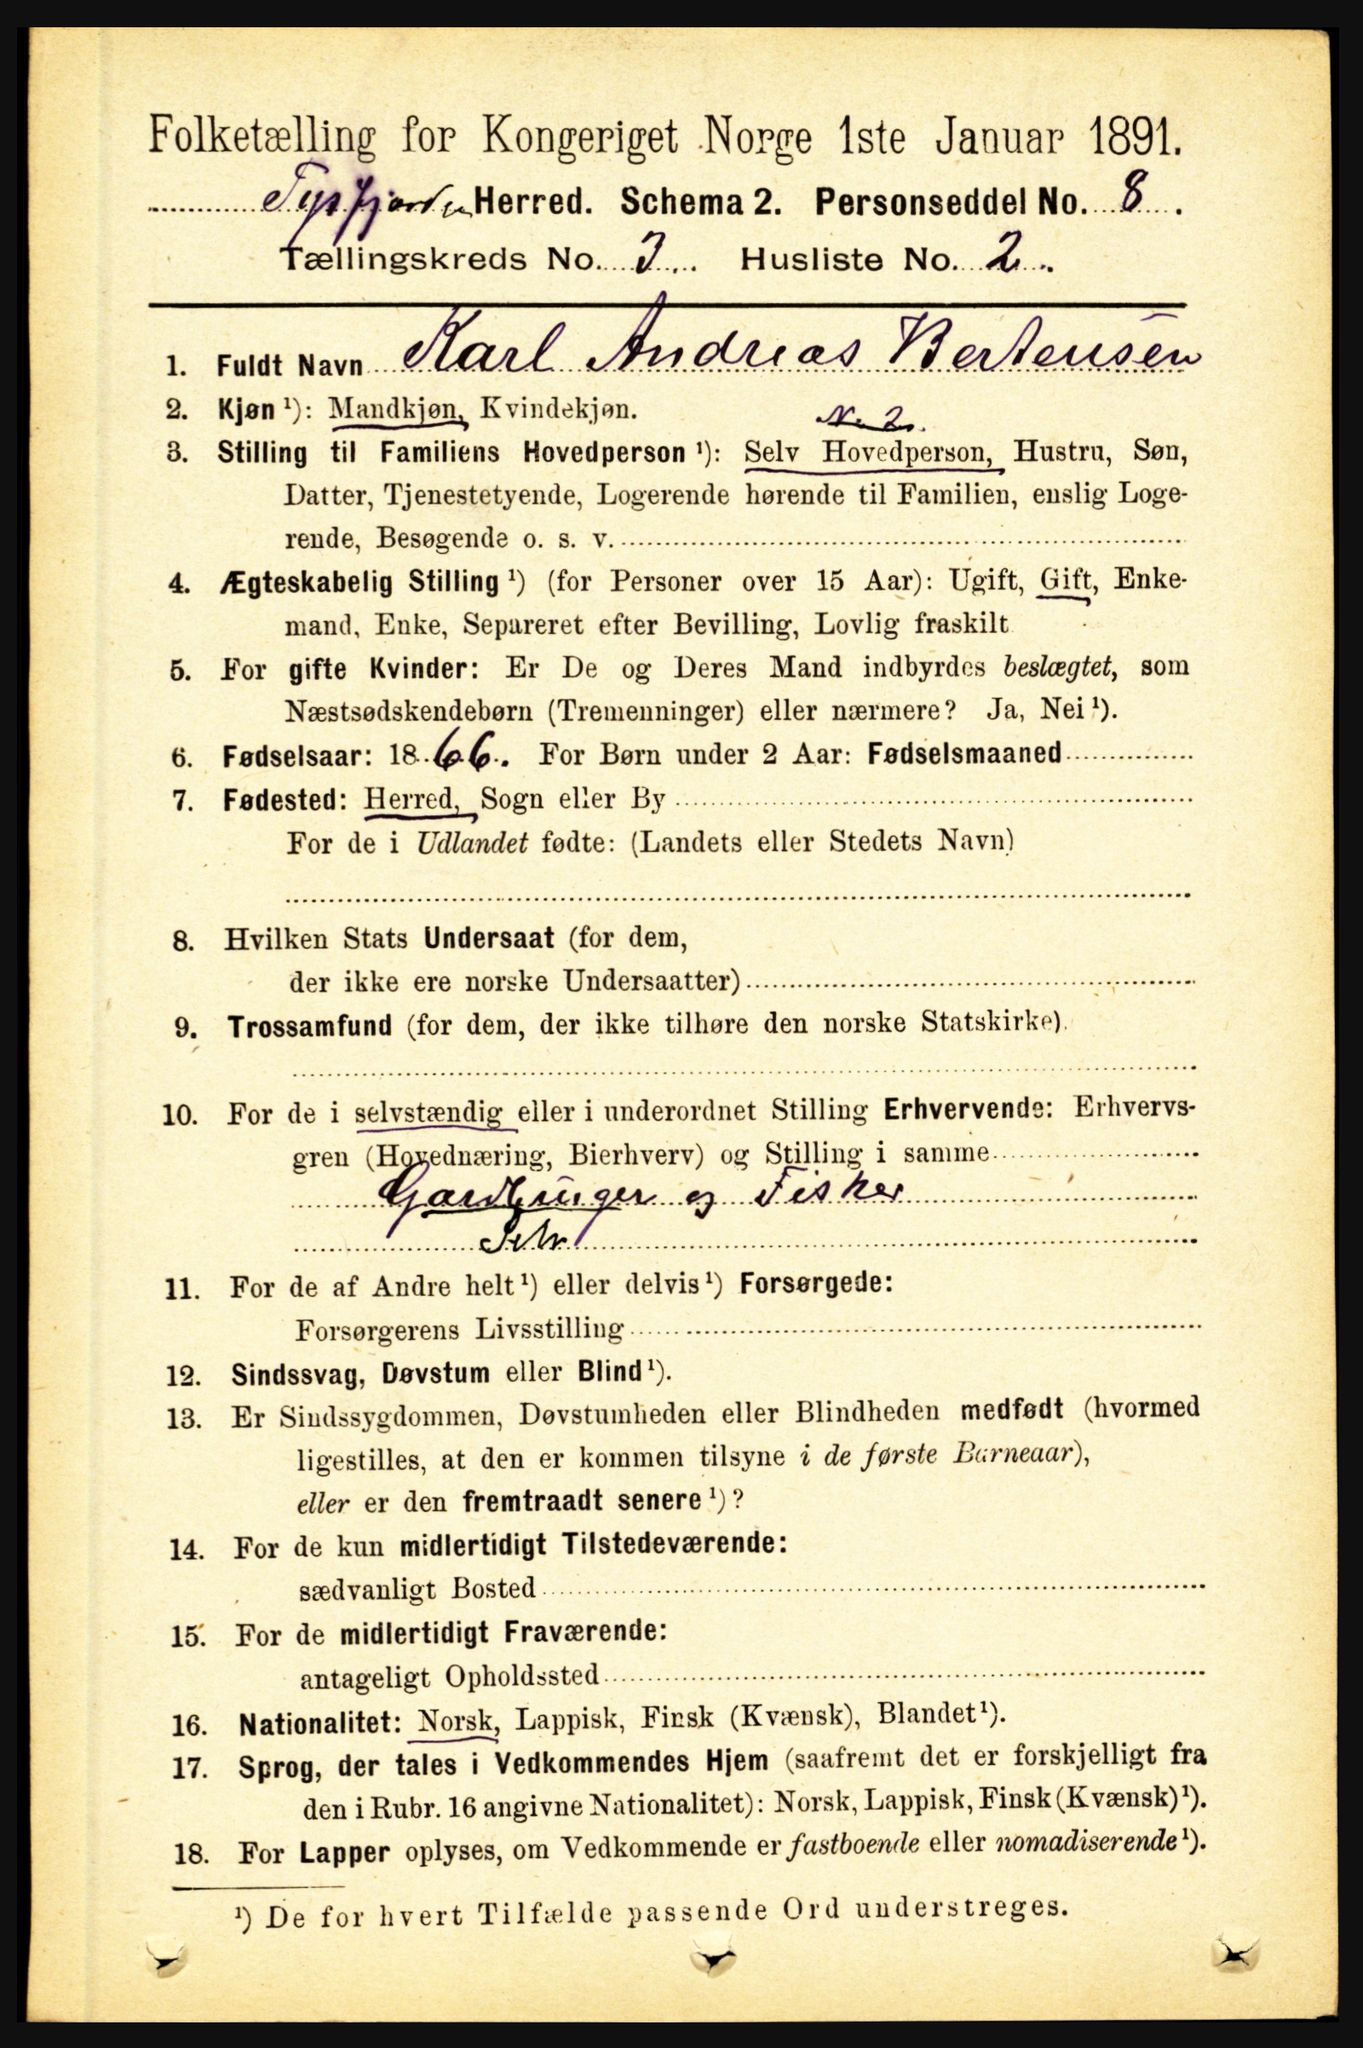 Folketælling for Kongeriget Norge 1ste Januar 1891.
Tysfjorden Herred. Schema 2. Personseddel No. 8.
Tællingskreds No. 3. Husliste No. 2.
1. Fuldt Navn Karl Andreas Bertensen
2. Kjøn ¹): Mandkjøn, Kvindekjøn.
No 2.
3. Stilling til Familiens Hovedperson ¹): Selv Hovedperson, Hustru, Søn,
Datter, Tjenestetyende, Logerende hørende til Familien, enslig Loge-
rende, Besøgende o. s. v.
4. Ægteskabelig Stilling ¹) (for Personer over 15 Aar): Ugift, Gift, Enke-
mand, Enke, Separeret efter Bevilling, Lovlig fraskilt
5. For gifte Kvinder: Er De og Deres Mand indbyrdes beslægtet, som
Næstsødskendebørn (Tremenninger) eller nærmere? Ja, Nei ¹).
6. Fødselsaar: 1866. For Børn under 2 Aar: Fødselsmaaned
7. Fødested: Herred, Sogn eller By
For de i Udlandet fødte: (Landets eller Stedets Navn)
8. Hvilken Stats Undersaat (for dem,
der ikke ere norske Undersaatter)
9. Trossamfund (for dem, der ikke tilhøre den norske Statskirke)
10. For de i selvstændig eller i underordnet Stilling Erhvervende: Erhvervs-
gren (Hovednæring, Bierhverv) og Stilling i samme
Gardbruger og Fisker
Selv
11. For de af Andre helt ¹) eller delvis ¹) Forsørgede:
Forsørgerens Livsstilling
12. Sindssvag, Døvstum eller Blind ¹).
13. Er Sindssygdommen, Døvstumheden eller Blindheden medfødt (hvormed
ligestilles, at den er kommen tilsyne i de første Barneaar),
eller er den fremtraadt senere ¹)?
14. For de kun midlertidigt Tilstedeværende:
sædvanligt Bosted
15. For de midlertidigt Fraværende:
antageligt Opholdssted
16. Nationalitet: Norsk, Lappisk, Finsk (Kvænsk), Blandet ¹).
17. Sprog, der tales i Vedkommendes Hjem (saafremt det er forskjelligt fra
den i Rubr. 16 angivne Nationalitet): Norsk, Lappisk, Finsk (Kvænsk) ¹).
18. For Lapper oplyses, om Vedkommende er fastboende eller nomadiserende ¹).
¹) De for hvert Tilfælde passende Ord understreges.